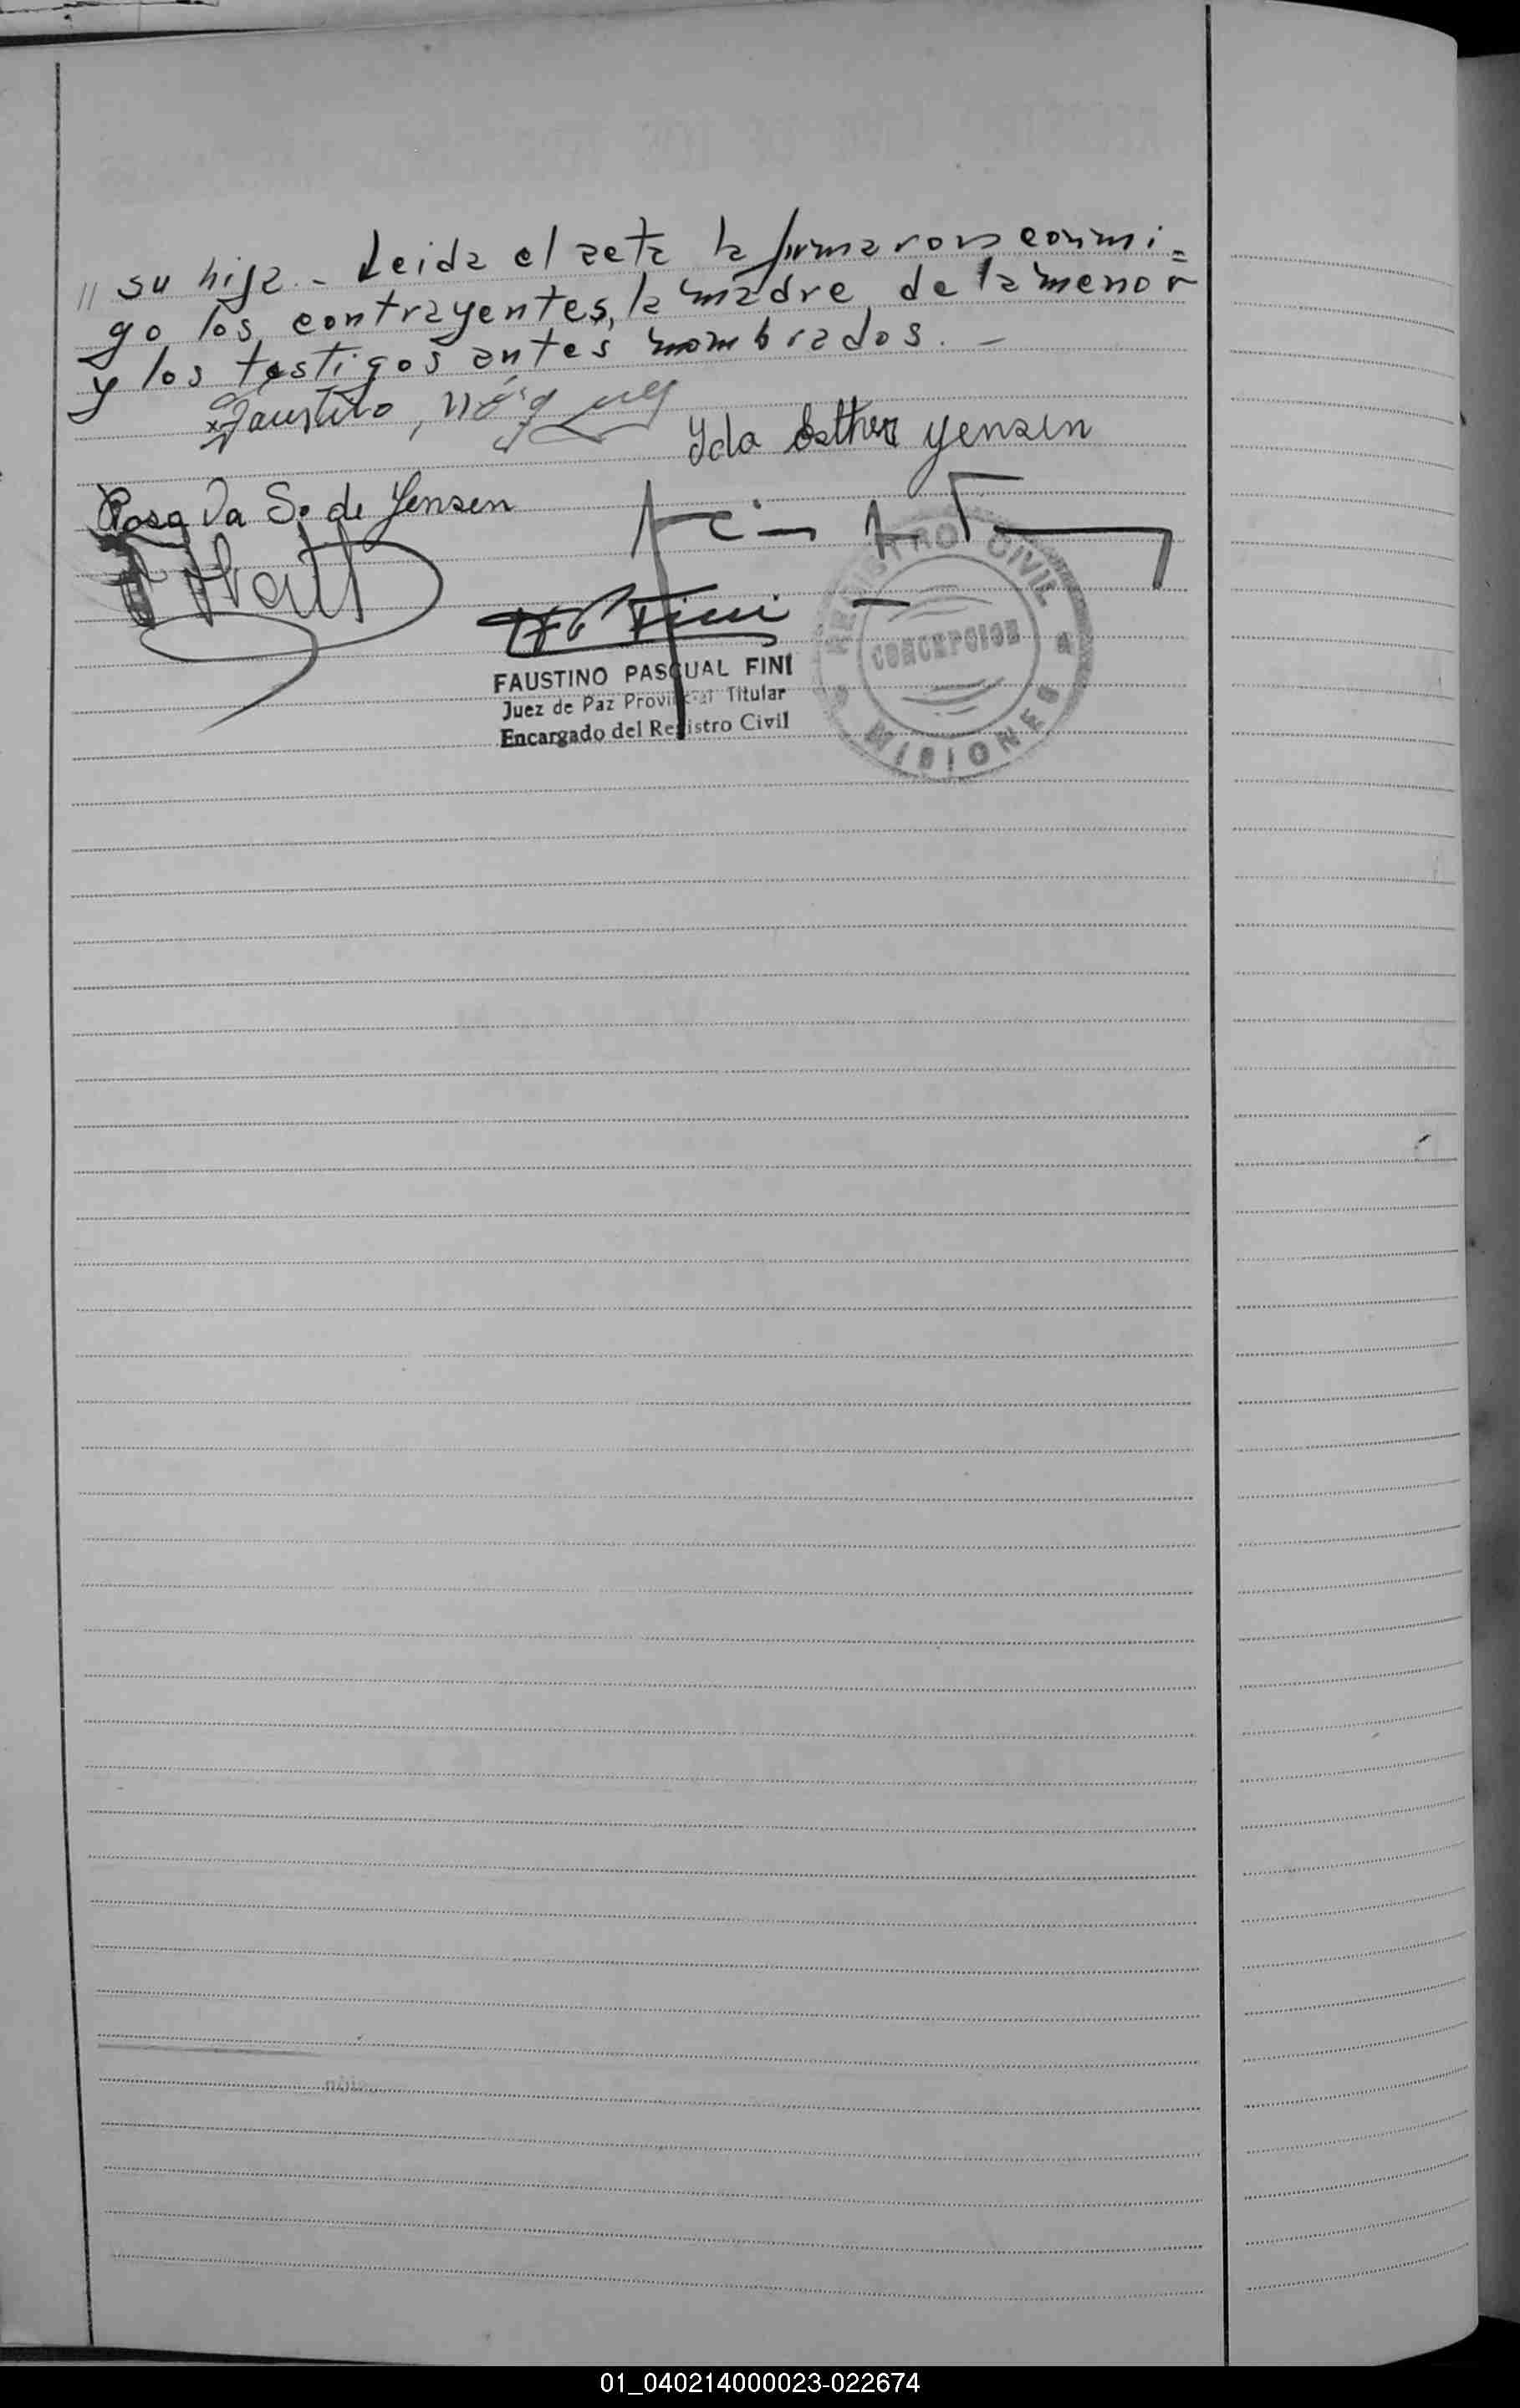 // su hija. - Leida el acta la firmaron conmi=
go los contrayentes, la madre de la menor
y los testigos antes nombrados. -
Faustino
Yda Esther Yensen
Rosa Da S. de Jensen
Fini
REGISTRO CIVIL
CONCEPCION
MISIONES
FAUSTINO PASCUAL FINI
Juez de Paz Provincial Titular
Encargado del Registro Civil
01_040214000023-022674